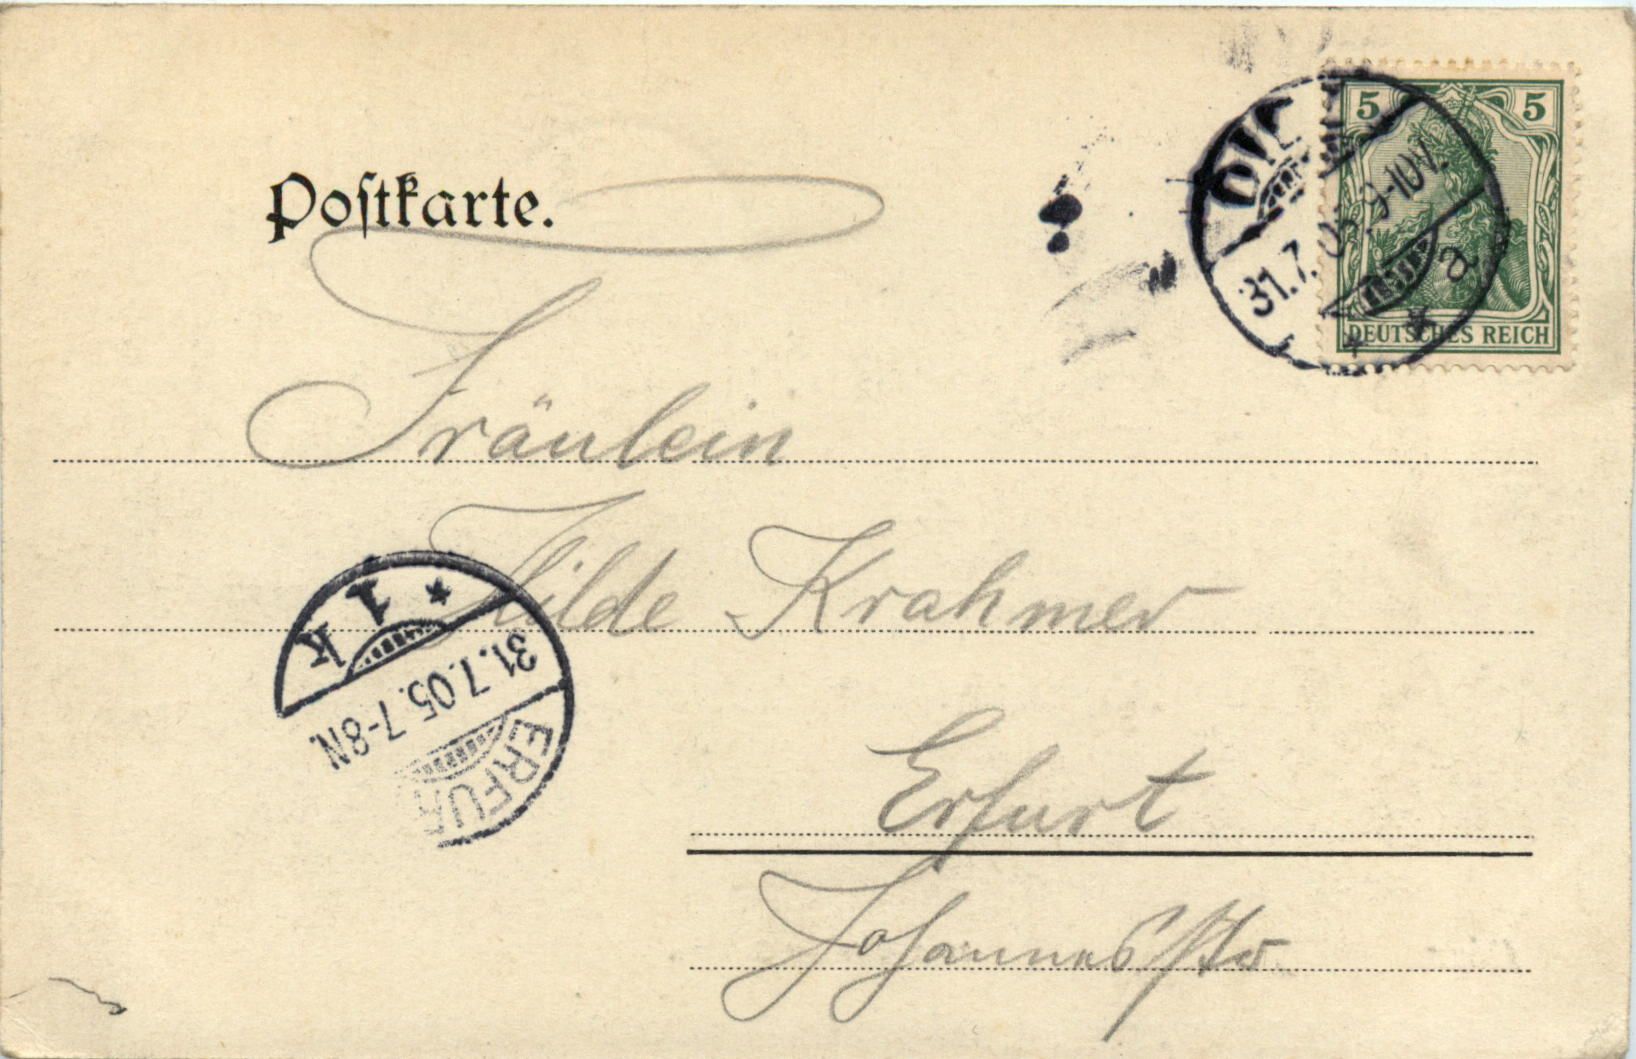 Postkarte.
5 5
DEUTSCHES REICH
31.7.05. 9-10V.
a
Fräulein
Hilde Krahmer
Erfurt
Johannesstr
ERFUR
31.7.05.7-8N.
1 K